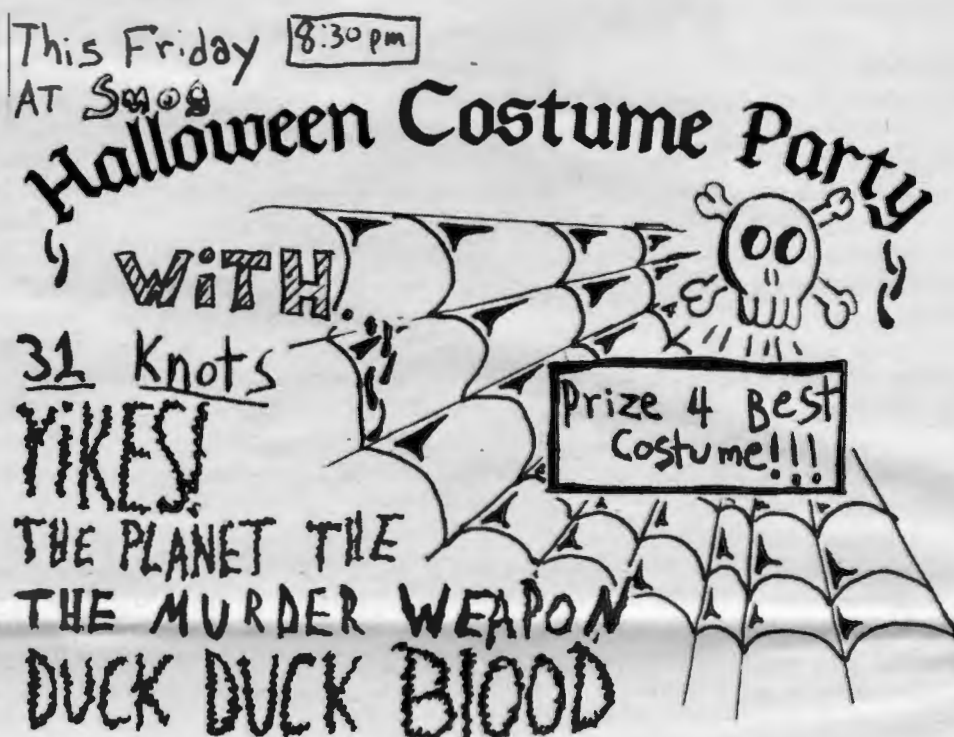 This Friday 8:30pm
AT Smog
Halloween Costume Party
WiTH
31 Knots
YiKES!
THE PLANET THE
THE MURDER WEAPON
DUCK DUCK BlOOD
Prize 4 Best
Costume!!!